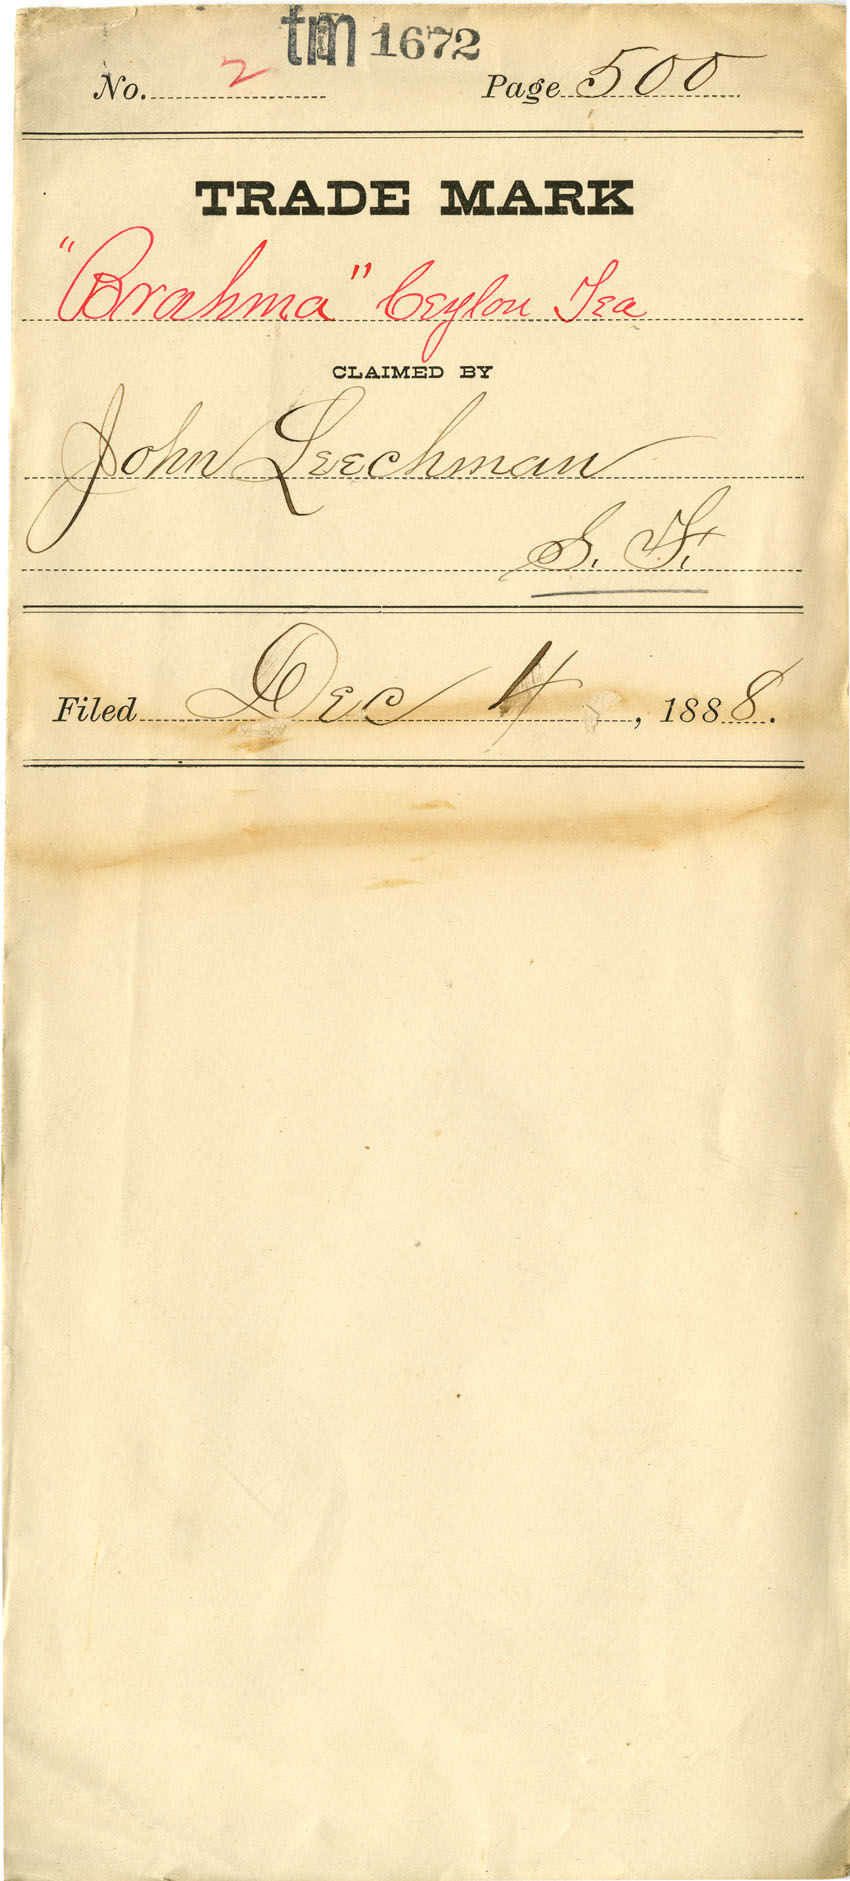 tm 1672
No. 2 Page 500
TRADE MARK
"Brahma" Ceylon Tea
CLAIMED BY
John Leechman
S. F.
Filed Dec 4, 1888.